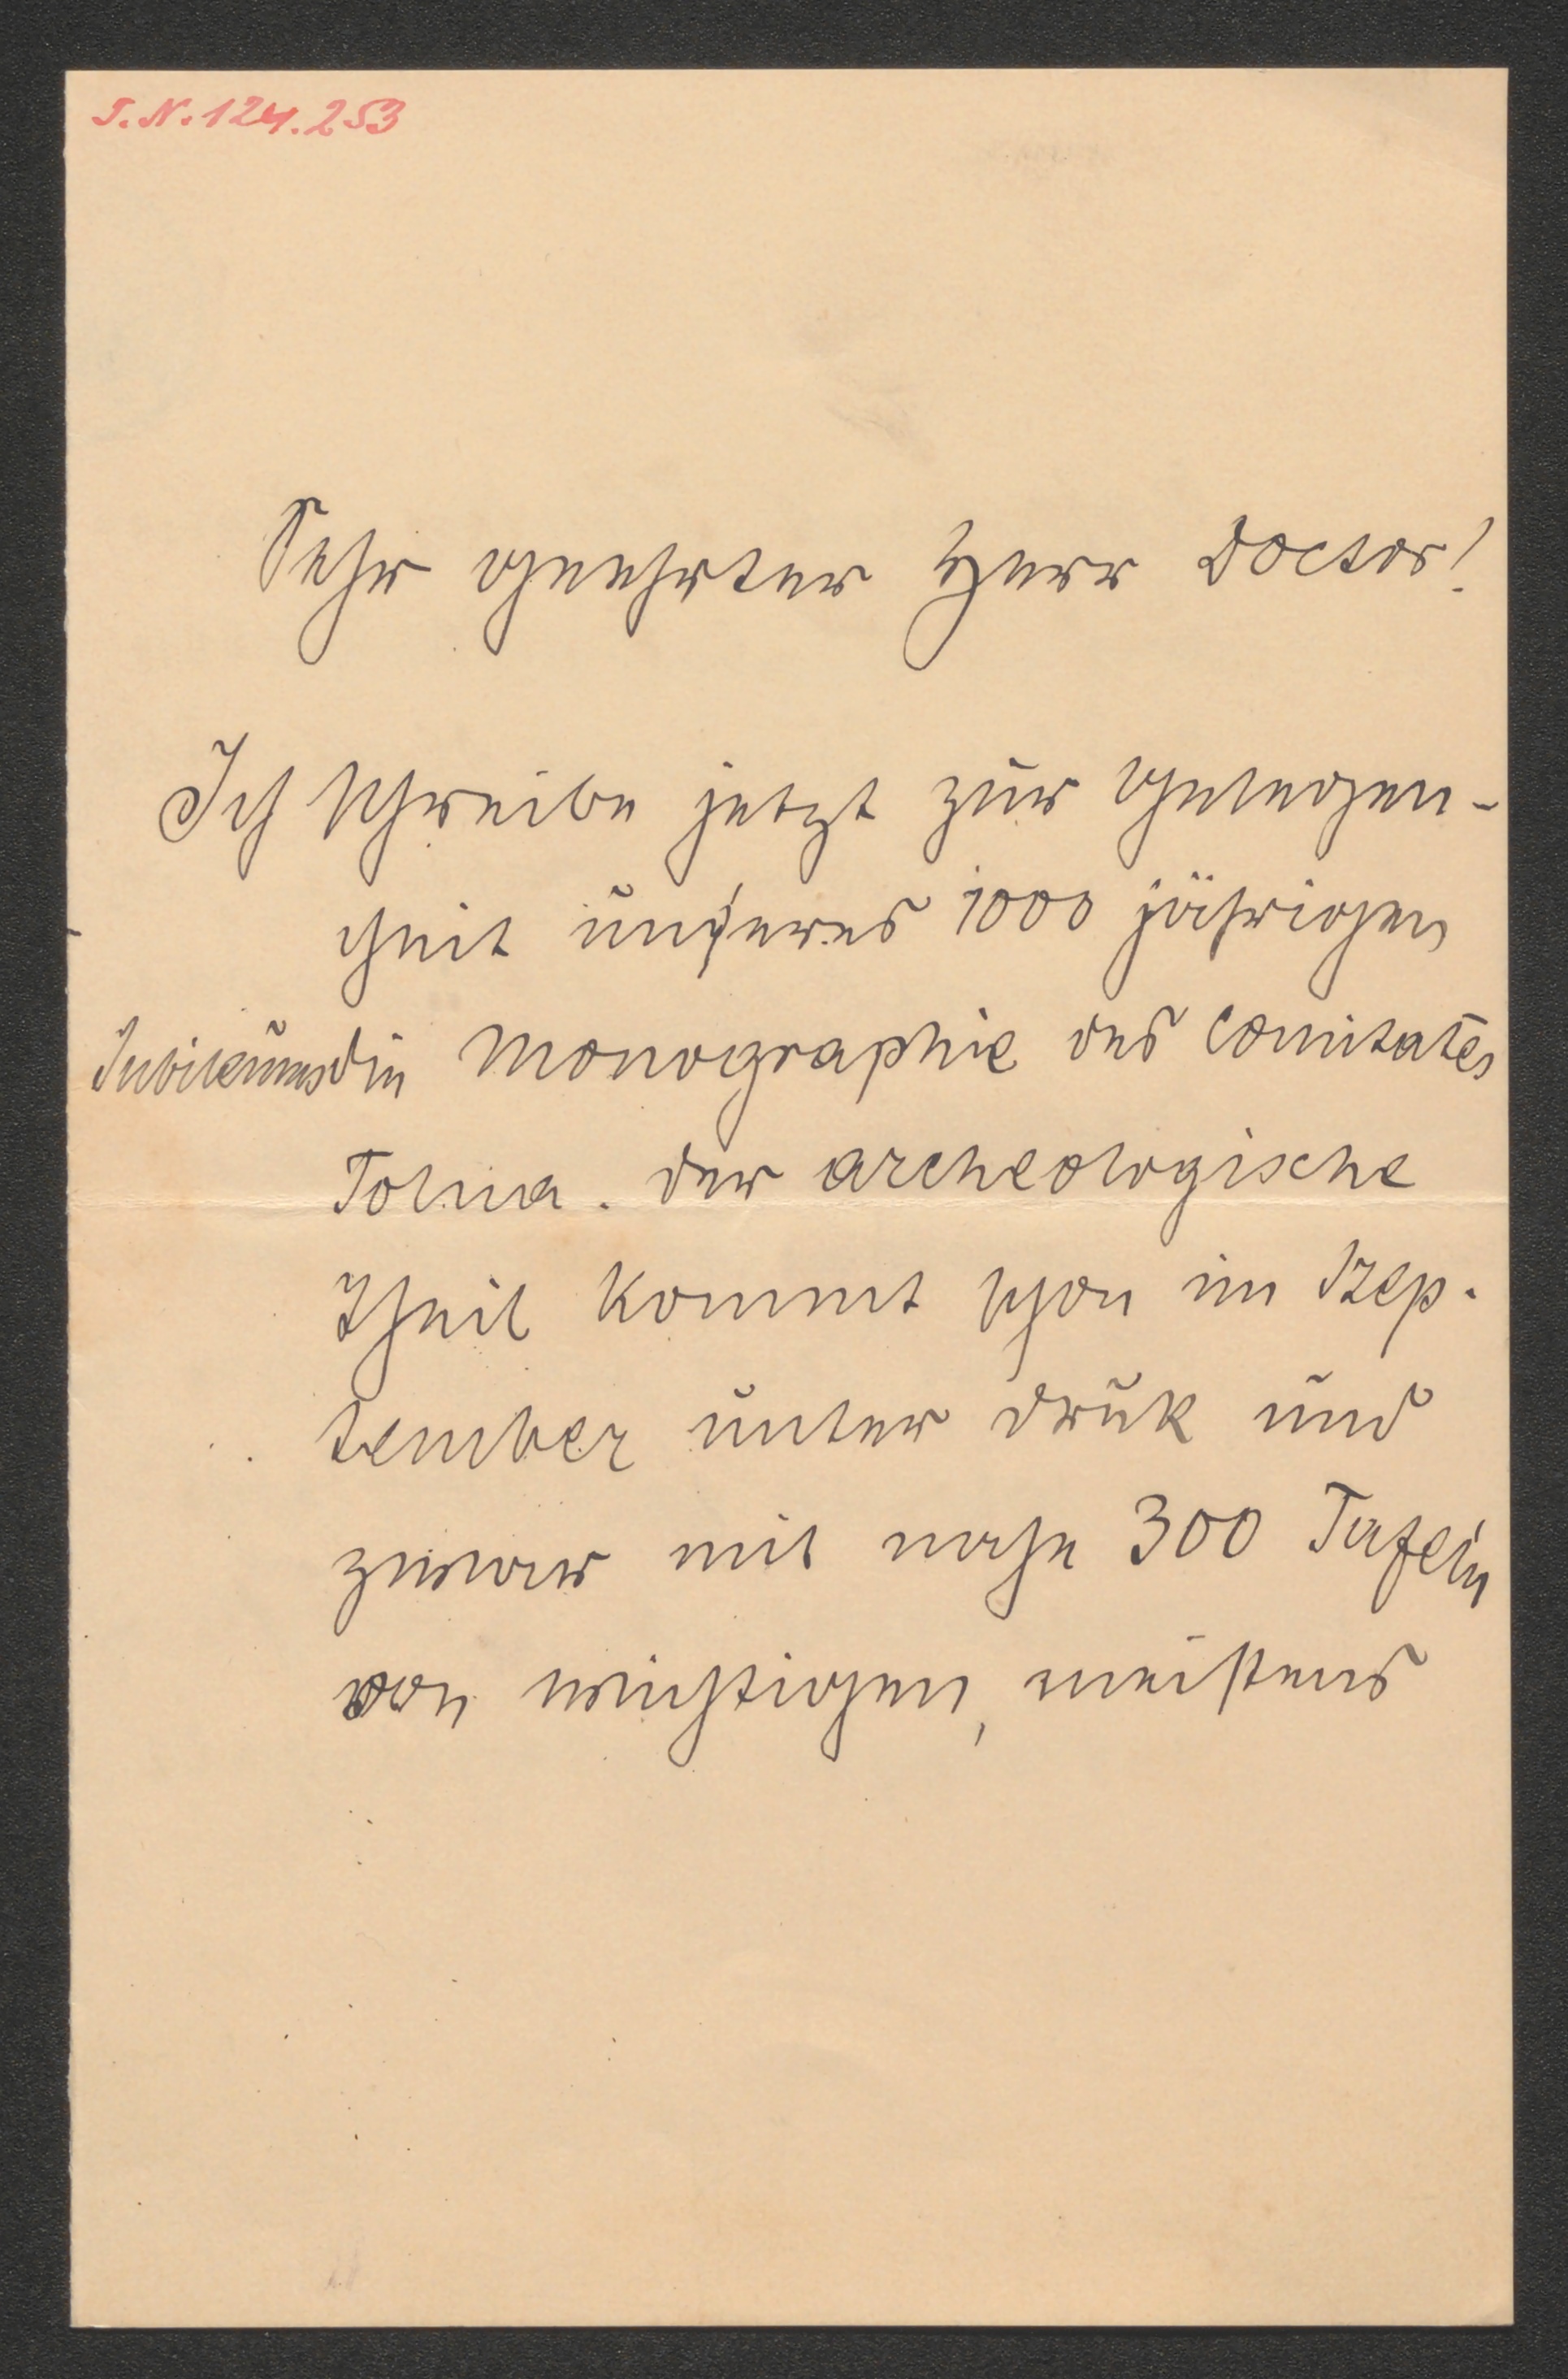 I.N. 124.253
Sehr geehrter Herr Doctor!
Ich schreibe jetzt zur Gelegen-
heit unseres 1000 jährigen
Jubileums die Monographie des Comitates
Tolna. Der archeologische
Theil kommt schon im Szep-
tember unter Druk und
zwar mit nahe 300 Tafeln
von wichtigen, meistens